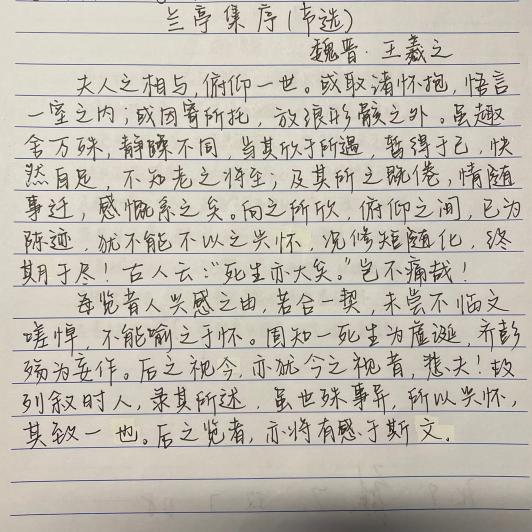 兰亭集序(节选)
魏晋·王羲之
夫人之相与,俯仰一世。或取诸怀抱,悟言
一室之内;或因寄所托,放浪形骸之外。虽趣
舍万殊,静躁不同,当其欣于所遇,暂得于己,快
然自足,不知老之将至;及其所之既倦,情随
事迁,感慨系之矣。向之所欣,俯仰之间,已为
陈迹,犹不能不以之兴怀,况修短随化,终
期于尽!古人云:“死生亦大矣。”岂不痛哉!
每览昔人兴感之由,若合一契,未尝不临文
嗟悼,不能喻之于怀。固知一死生为虚诞,齐彭
殇为妄作。后之视今,亦犹今之视昔,悲夫!故
列叙时人,录其所述,虽世殊事异,所以兴怀,
其致一也。后之览者,亦将有感于斯文。